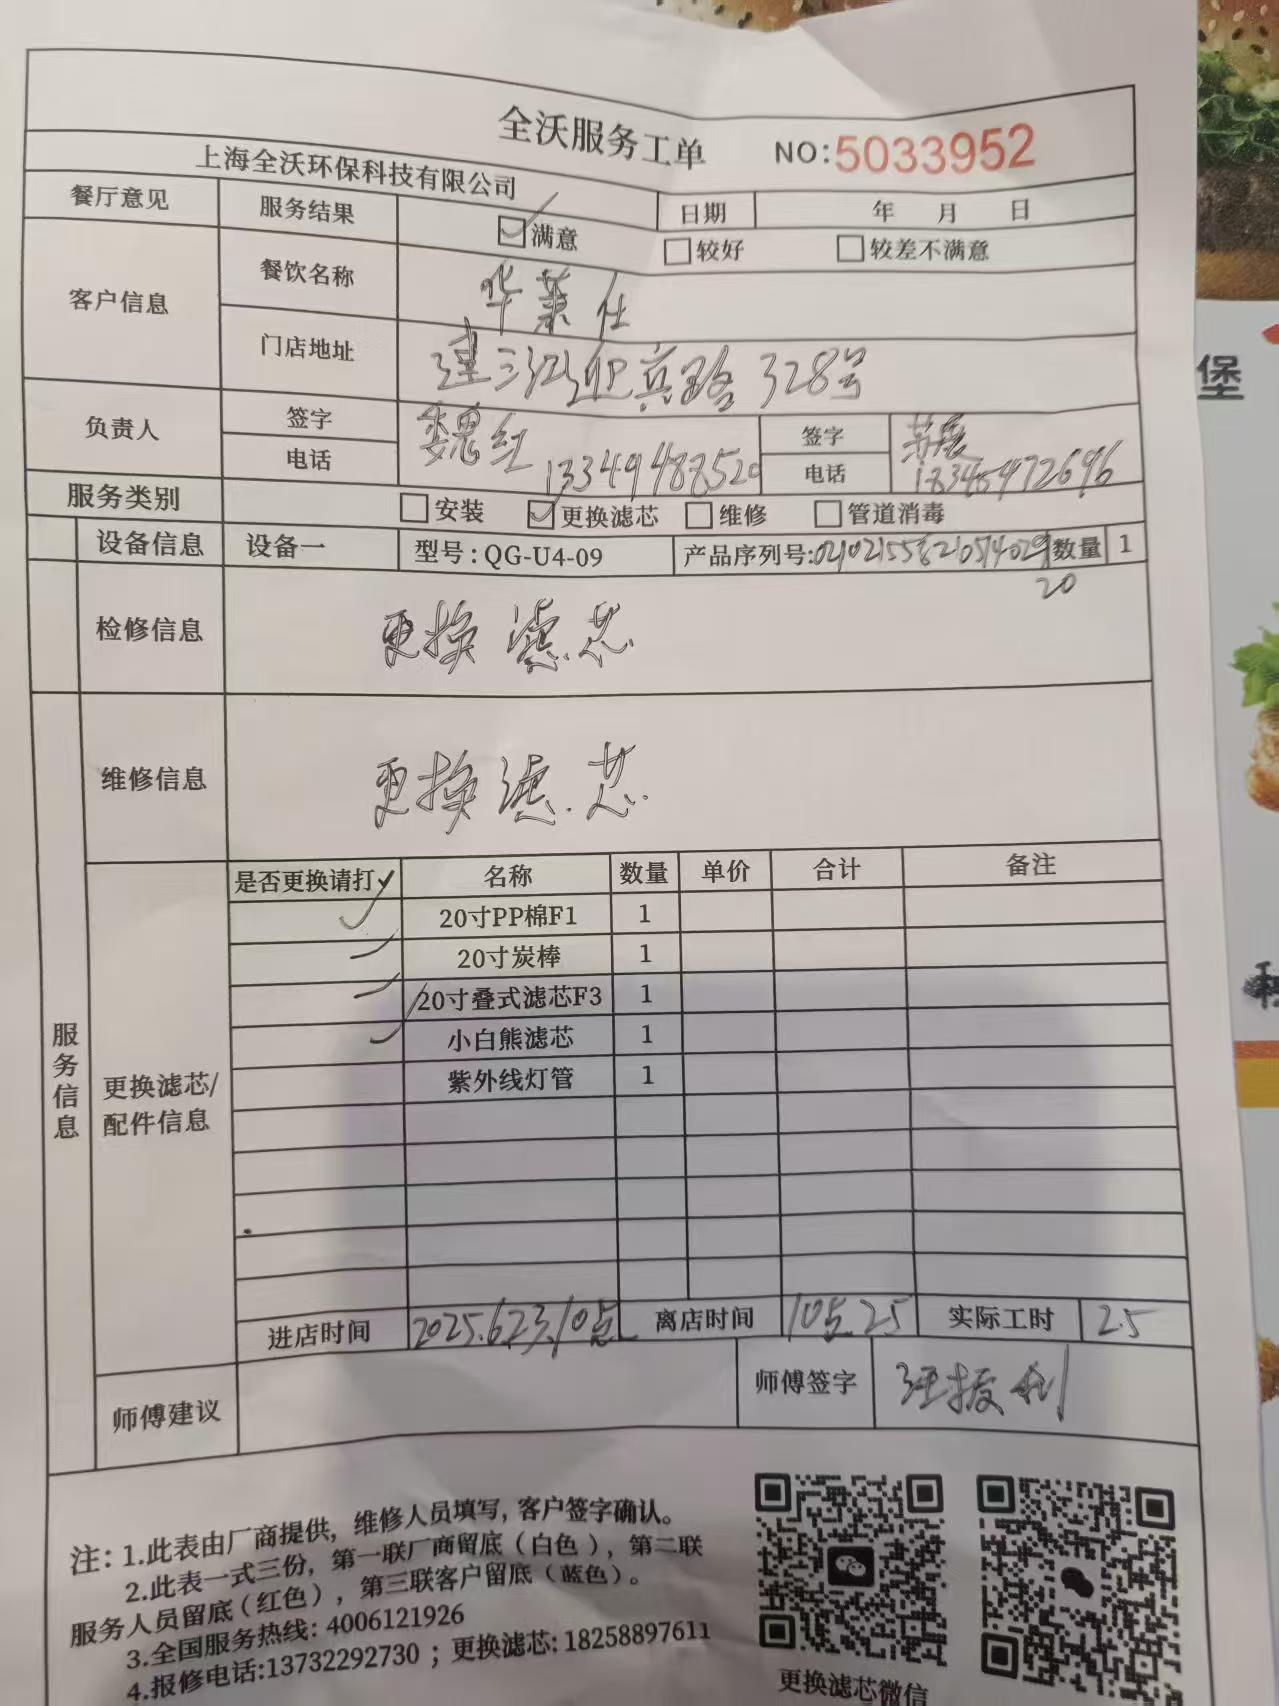 全沃服务工单 NO:5033952
上海全沃环保科技有限公司 日期 年 月 日
餐厅意见 服务结果 ☑满意 □较好 □较差不满意
客户信息 餐饮名称 华莱仕
门店地址 建三江迎宾路328号
负责人 签字 魏红 签字
电话 13349488520 电话 18345472696
服务类别 □安装 ☑更换滤芯 □维修 □管道消毒
设备信息 设备一 型号:QG-U4-09 产品序列号: 数量 1
20
检修信息 更换滤芯
维修信息 更换滤芯
服务信息
更换滤芯/
配件信息
是否更换请打✓ 名称 数量 单价 合计 备注
✓ 20寸PP棉F1 1
✓ 20寸炭棒 1
✓ 20寸叠式滤芯F3 1
✓ 小白熊滤芯 1
紫外线灯管 1
进店时间 2025.6.23.10点 离店时间 10点.25 实际工时 2.5
师傅建议 师傅签字
注:1.此表由厂商提供,维修人员填写,客户签字确认。
2.此表一式三份,第一联厂商留底(白色),第二联
服务人员留底(红色),第三联客户留底(蓝色)。
3.全国服务热线:4006121926
4.报修电话:13732292730;更换滤芯:18258897611
更换滤芯微信
堡